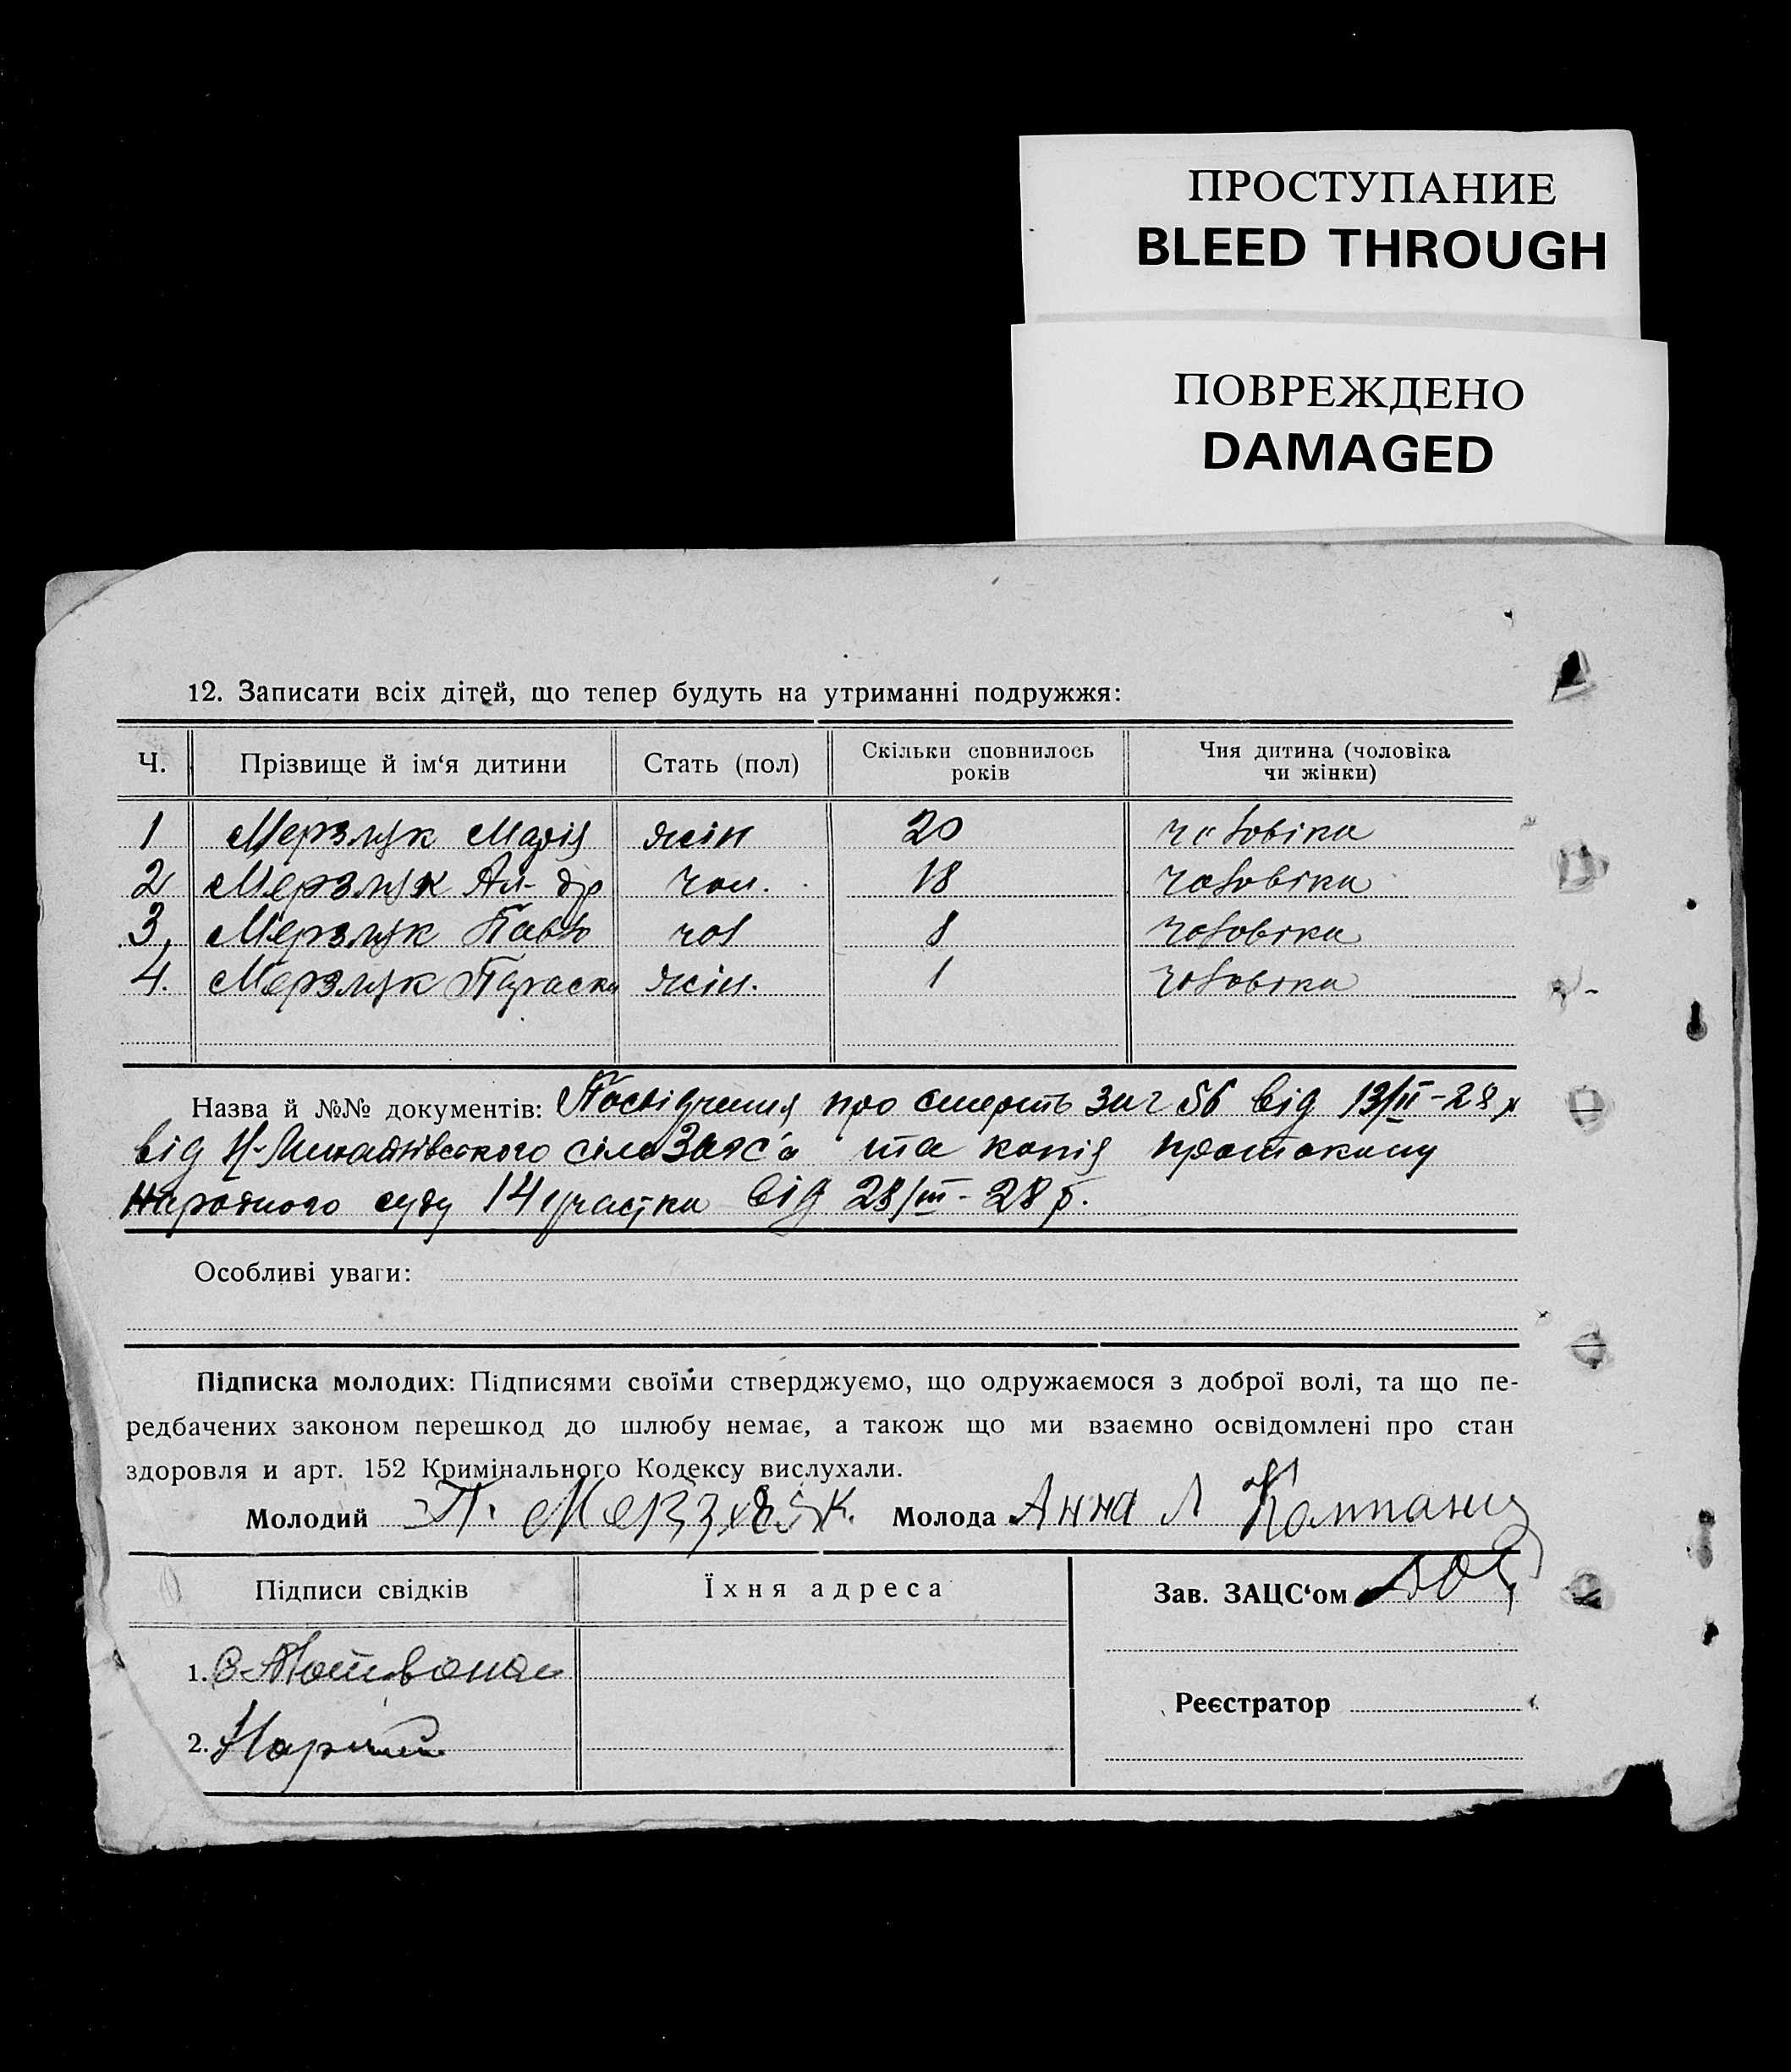 ПРОСТУПАНИЕ
BLEED THROUGH
ПОВРЕЖДЕНО
DAMAGED
12. Записати всіх дітей, що тепер будуть на утриманні подружжя:
Ч. Прізвище й ім‘я дитини Стать (пол) Скільки сповнилось років Чия дитина (чоловіка чи жінки)
1 Мерзлук Марія жін 20 чоловіка
2 Мерзлук Ал-др чол. 18 чоловіка
3. Мерзлук Павло чол 8 чоловіка
4. Мерзлук Параска жін. 1 чоловіка
Назва й №№ документів: Посвідчення про смерть за ч 56 від 13/II-28 р
від сільЗАГС'а та копія протоколу
Народного суду 14 участка від 28/III-28 р.
Особливі уваги:
Підписка молодих: Підписями своїми стверджуємо, що одружаємося з доброї волі, та що пе-
редбачених законом перешкод до шлюбу немає, а також що ми взаємно освідомлені про стан
здоровля и арт. 152 Кримінального Кодексу вислухали.
Молодий П. Молода Анна Л
Підписи свідків Їхня адреса Зав. ЗАЦС‘ом
1.
Реєстратор
2.